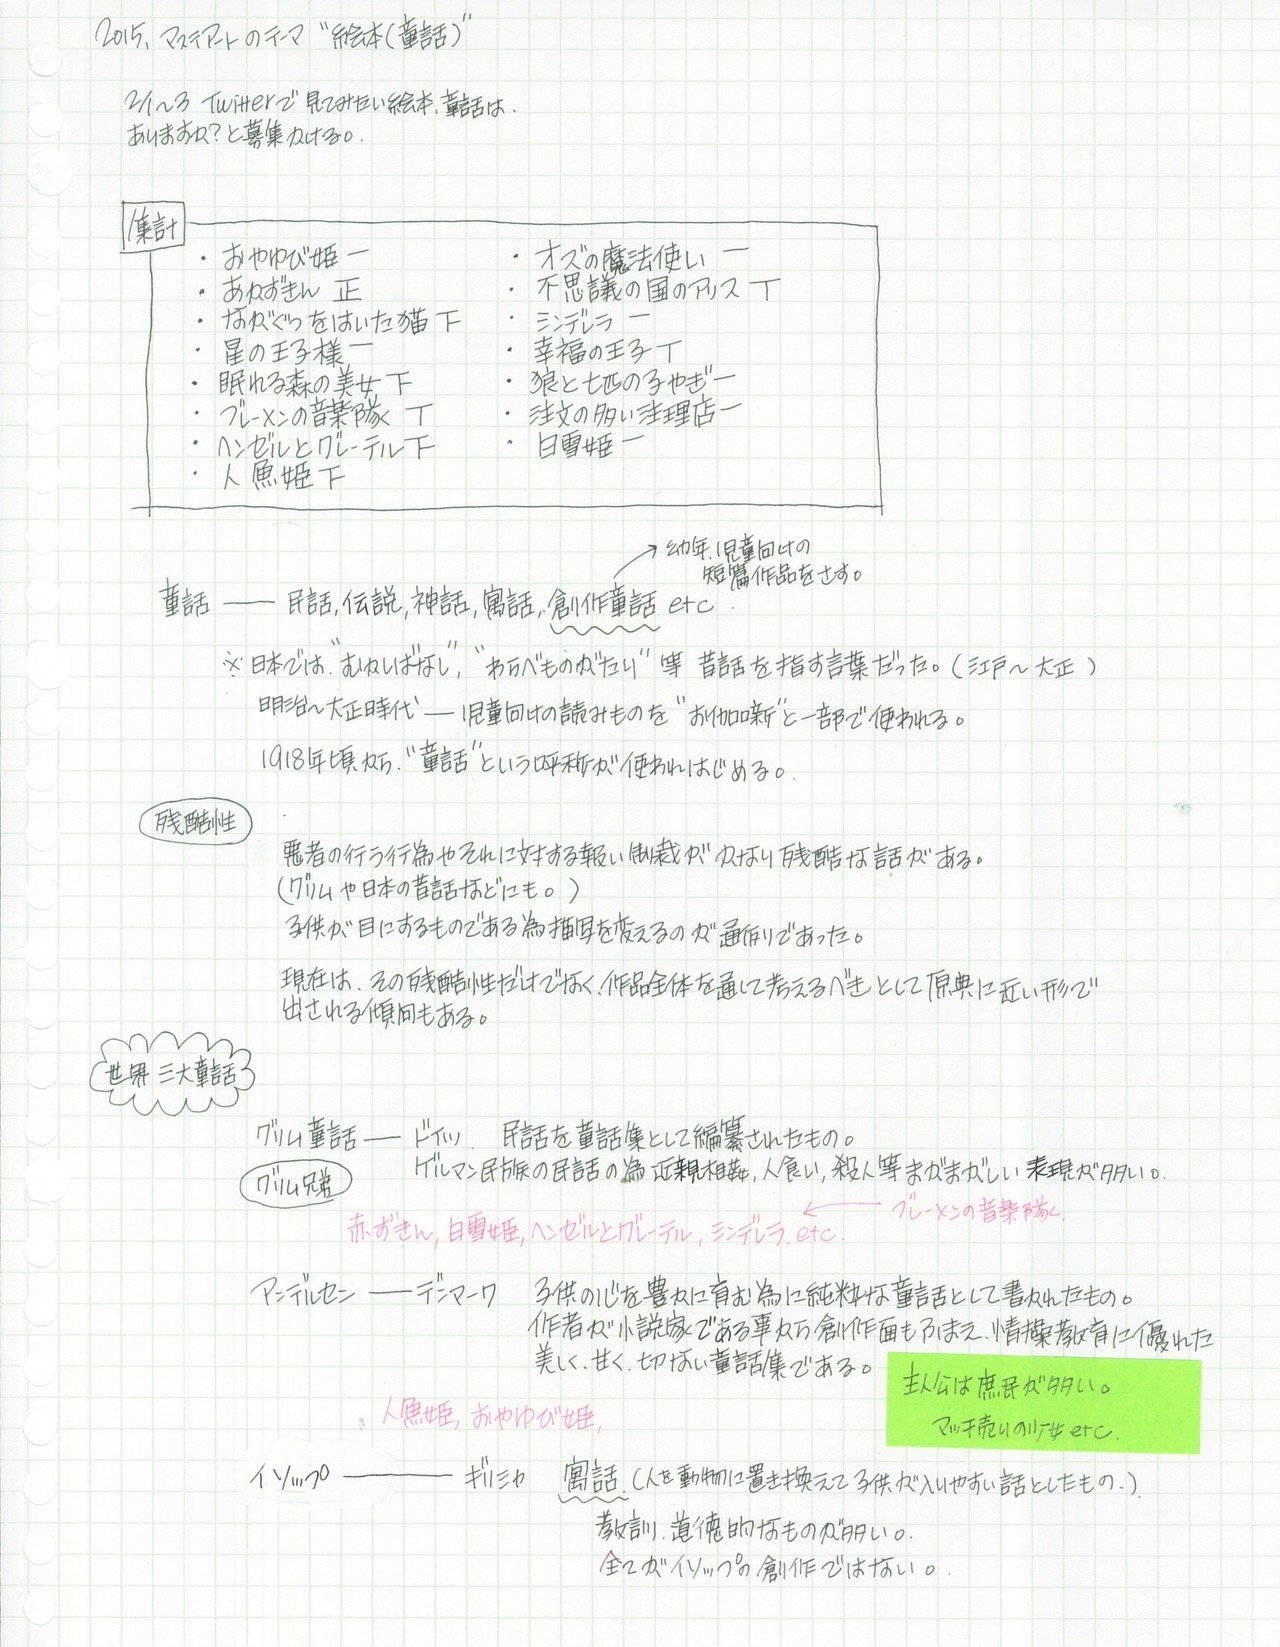 2015, マステアートのテーマ "絵本(童話)"
2/1〜3 Twitterで見てみたい絵本、童話は
ありますか?と募集かける。
集計
・おやゆび姫 一
・あかずきん 正
・ながぐつをはいた猫 下
・星の王子様 一
・眠れる森の美女 下
・ブレーメンの音楽隊 T
・ヘンゼルとグレーテル 下
・人魚姫 下
・オズの魔法使い 一
・不思議の国のアリス T
・シンデレラ 一
・幸福の王子 T
・狼と七匹の子やぎ 一
・注文の多い注理店 一
・白雪姫 一
→ 幼年、児童向けの
短篇作品をさす。
童話 —— 民話, 伝説, 神話, 寓話, 創作童話 etc
※日本では、"むかしばなし", "わらべものがたり" 等 昔話を指す言葉だった。(江戸〜大正)
明治〜大正時代 — 児童向けの読みものを "お伽噺" と一部で使われる。
1918年頃から、"童話" という呼称が使われはじめる。
残酷性
悪者の行う行為やそれに対する報い制裁がかなり残酷な話がある。
(グリムや日本の昔話などにも。)
子供が目にするものである為描写を変えるのが通例であった。
現在は、その残酷性だけでなく、作品全体を通して考えるべきとして原典に近い形で
出される傾向もある。
世界三大童話
グリム童話 —— ドイツ 民話を童話集として編纂されたもの。
グリム兄弟
ゲルマン民族の民話の為 近親相姦, 人食い, 殺人等まがまがしい表現が多い。
赤ずきん, 白雪姫, ヘンゼルとグレーテル, シンデレラ, etc. ← ブレーメンの音楽隊
アンデルセン —— デンマーク 子供の心を豊かに育む為に純粋な童話として書かれたもの。
作者が小説家である事から創作面もふまえ、情操教育に優れた
美しく、甘く、切ない童話集である。
主人公は庶民が多い。
マッチ売りの少女 etc.
人魚姫, おやゆび姫,
イソップ ——— ギリシャ 寓話 (人を動物に置き換えて子供が入りやすい話としたもの.)
教訓、道徳的なものが多い。
全てがイソップの創作ではない。